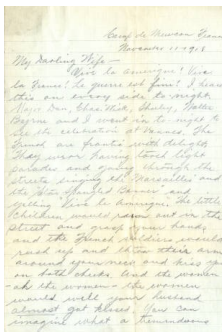 Camp de Meucon France
November 11-1918
My Darling Wife—
Vive la Amerique! Viva
la France! La guerre est fini! I hear
this on every side to-night.
Major Dan, Chas. Mick, Shirley, Walter
Byrne and I went in to-night to
see the celebration at Vannes. The
French are frantic with delight.
They were having torch light
parades and going through the
streets singing the "Marsailles" and
the "Star Spangled Banner" and
yelling Vive la Amerique. The little
children would run out in the
street and grasp your hands
and the French soldiers would
rush out and throw their arms
around your neck and kiss you
on both cheeks. And the women
- ah the women - the women
would well your husband
almost got kissed. You can
imagine what a tremendous